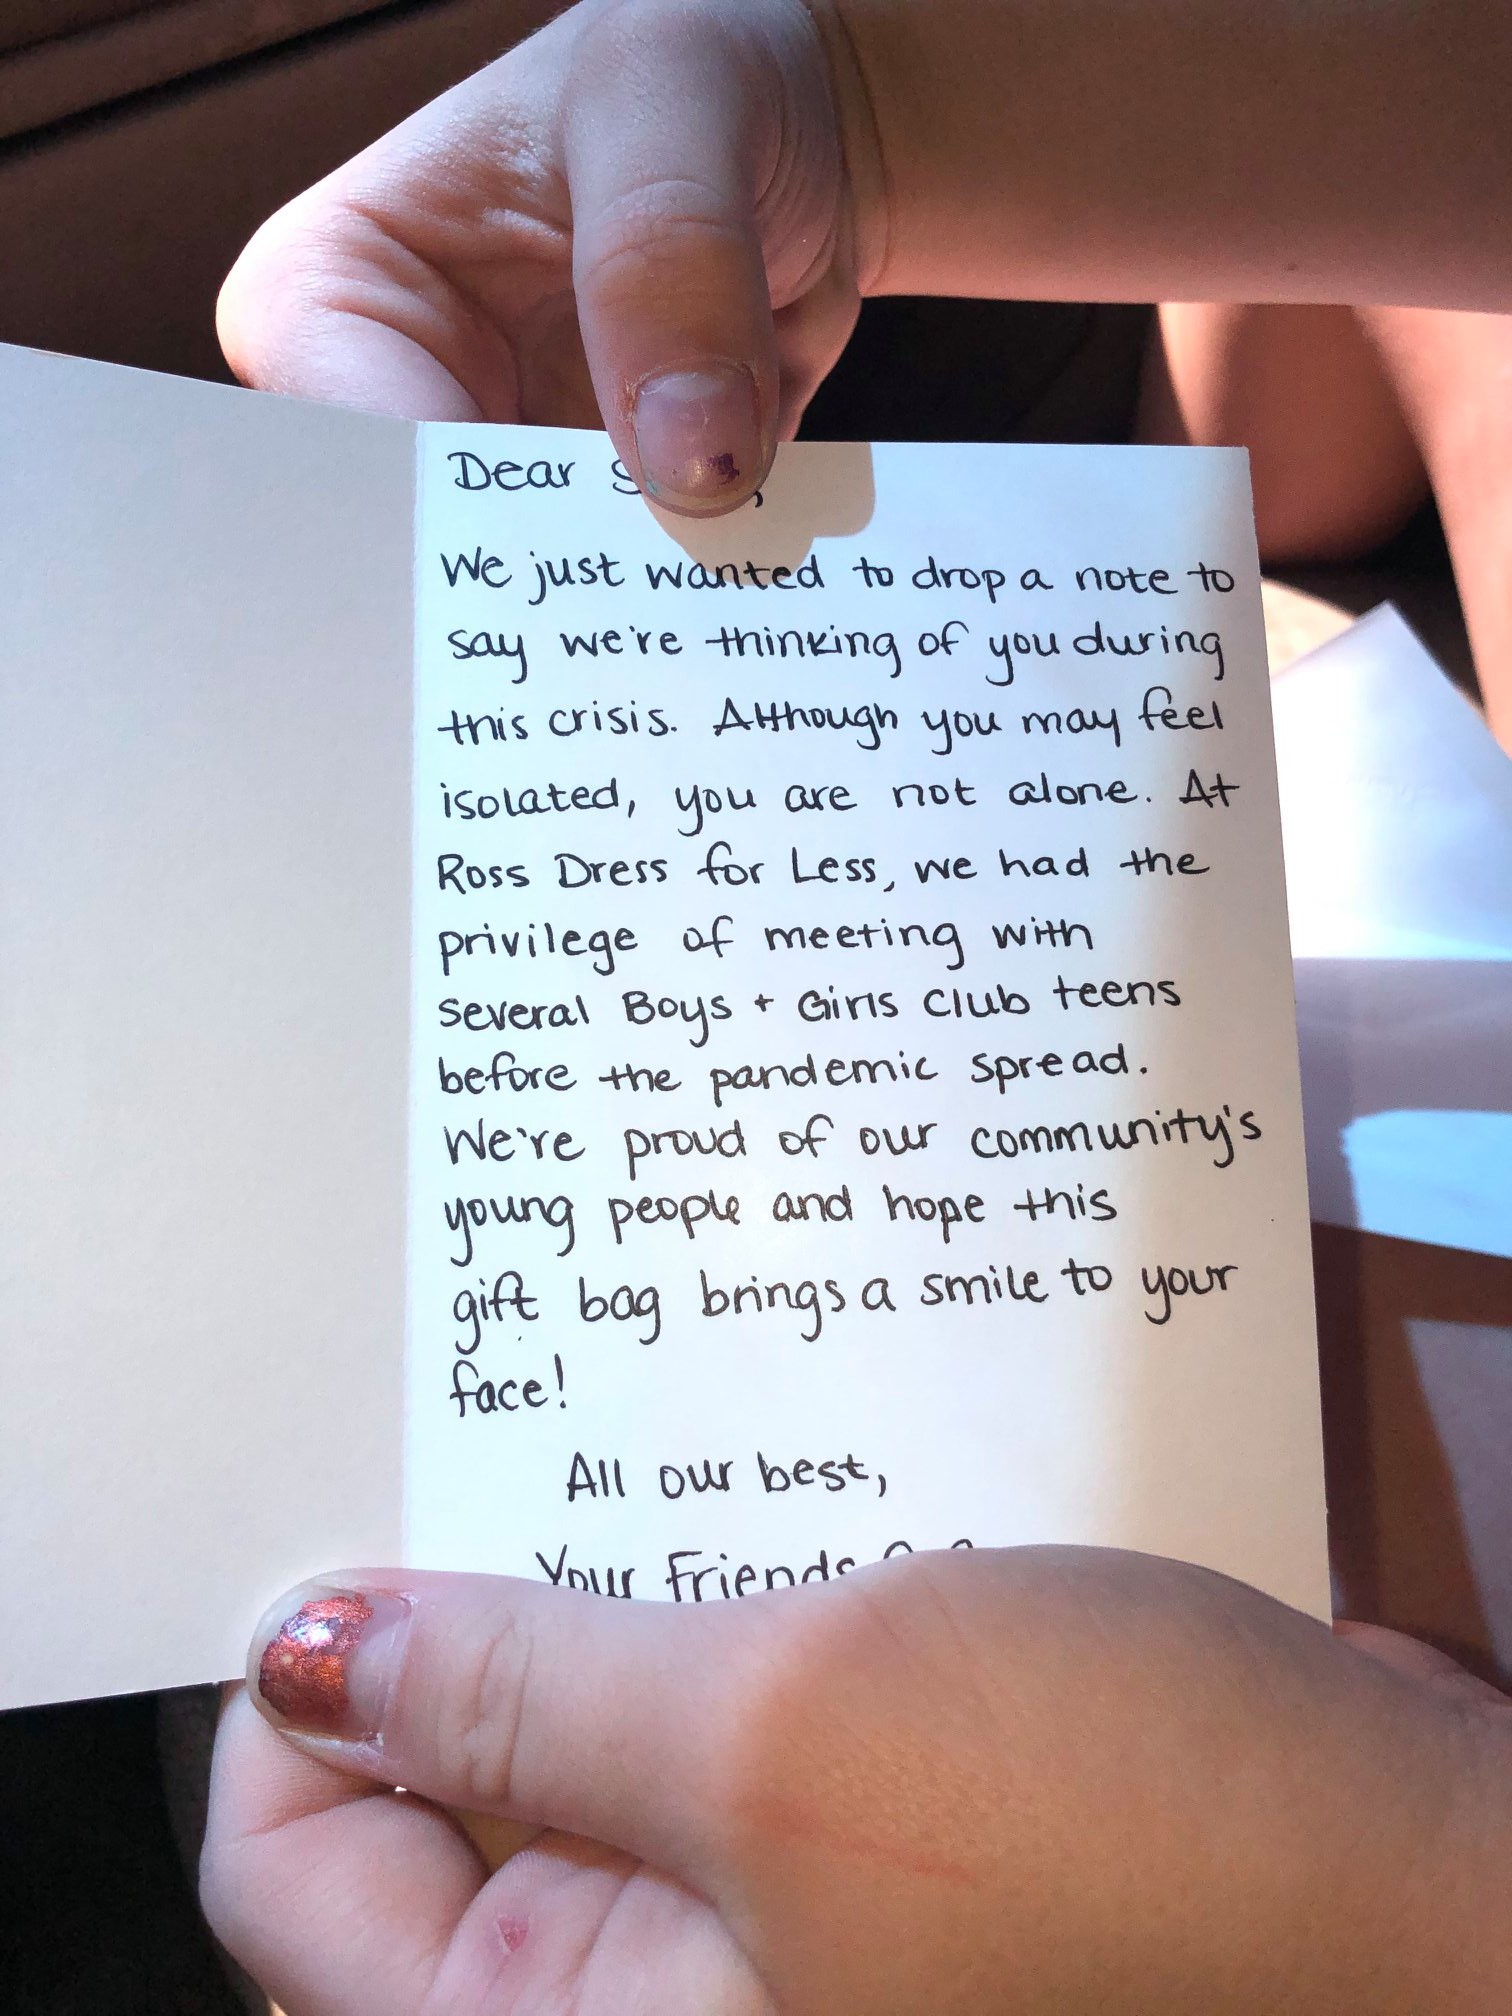 Dear
We just wanted to drop a note to
say we're thinking of you during
this crisis. Although you may feel
isolated, you are not alone. At
Ross Dress for Less, we had the
privilege of meeting with
several Boys + Girls Club teens
before the pandemic spread.
We're proud of our community's
young people and hope this
gift bag brings a smile to your
face!
All our best,
Your Friends